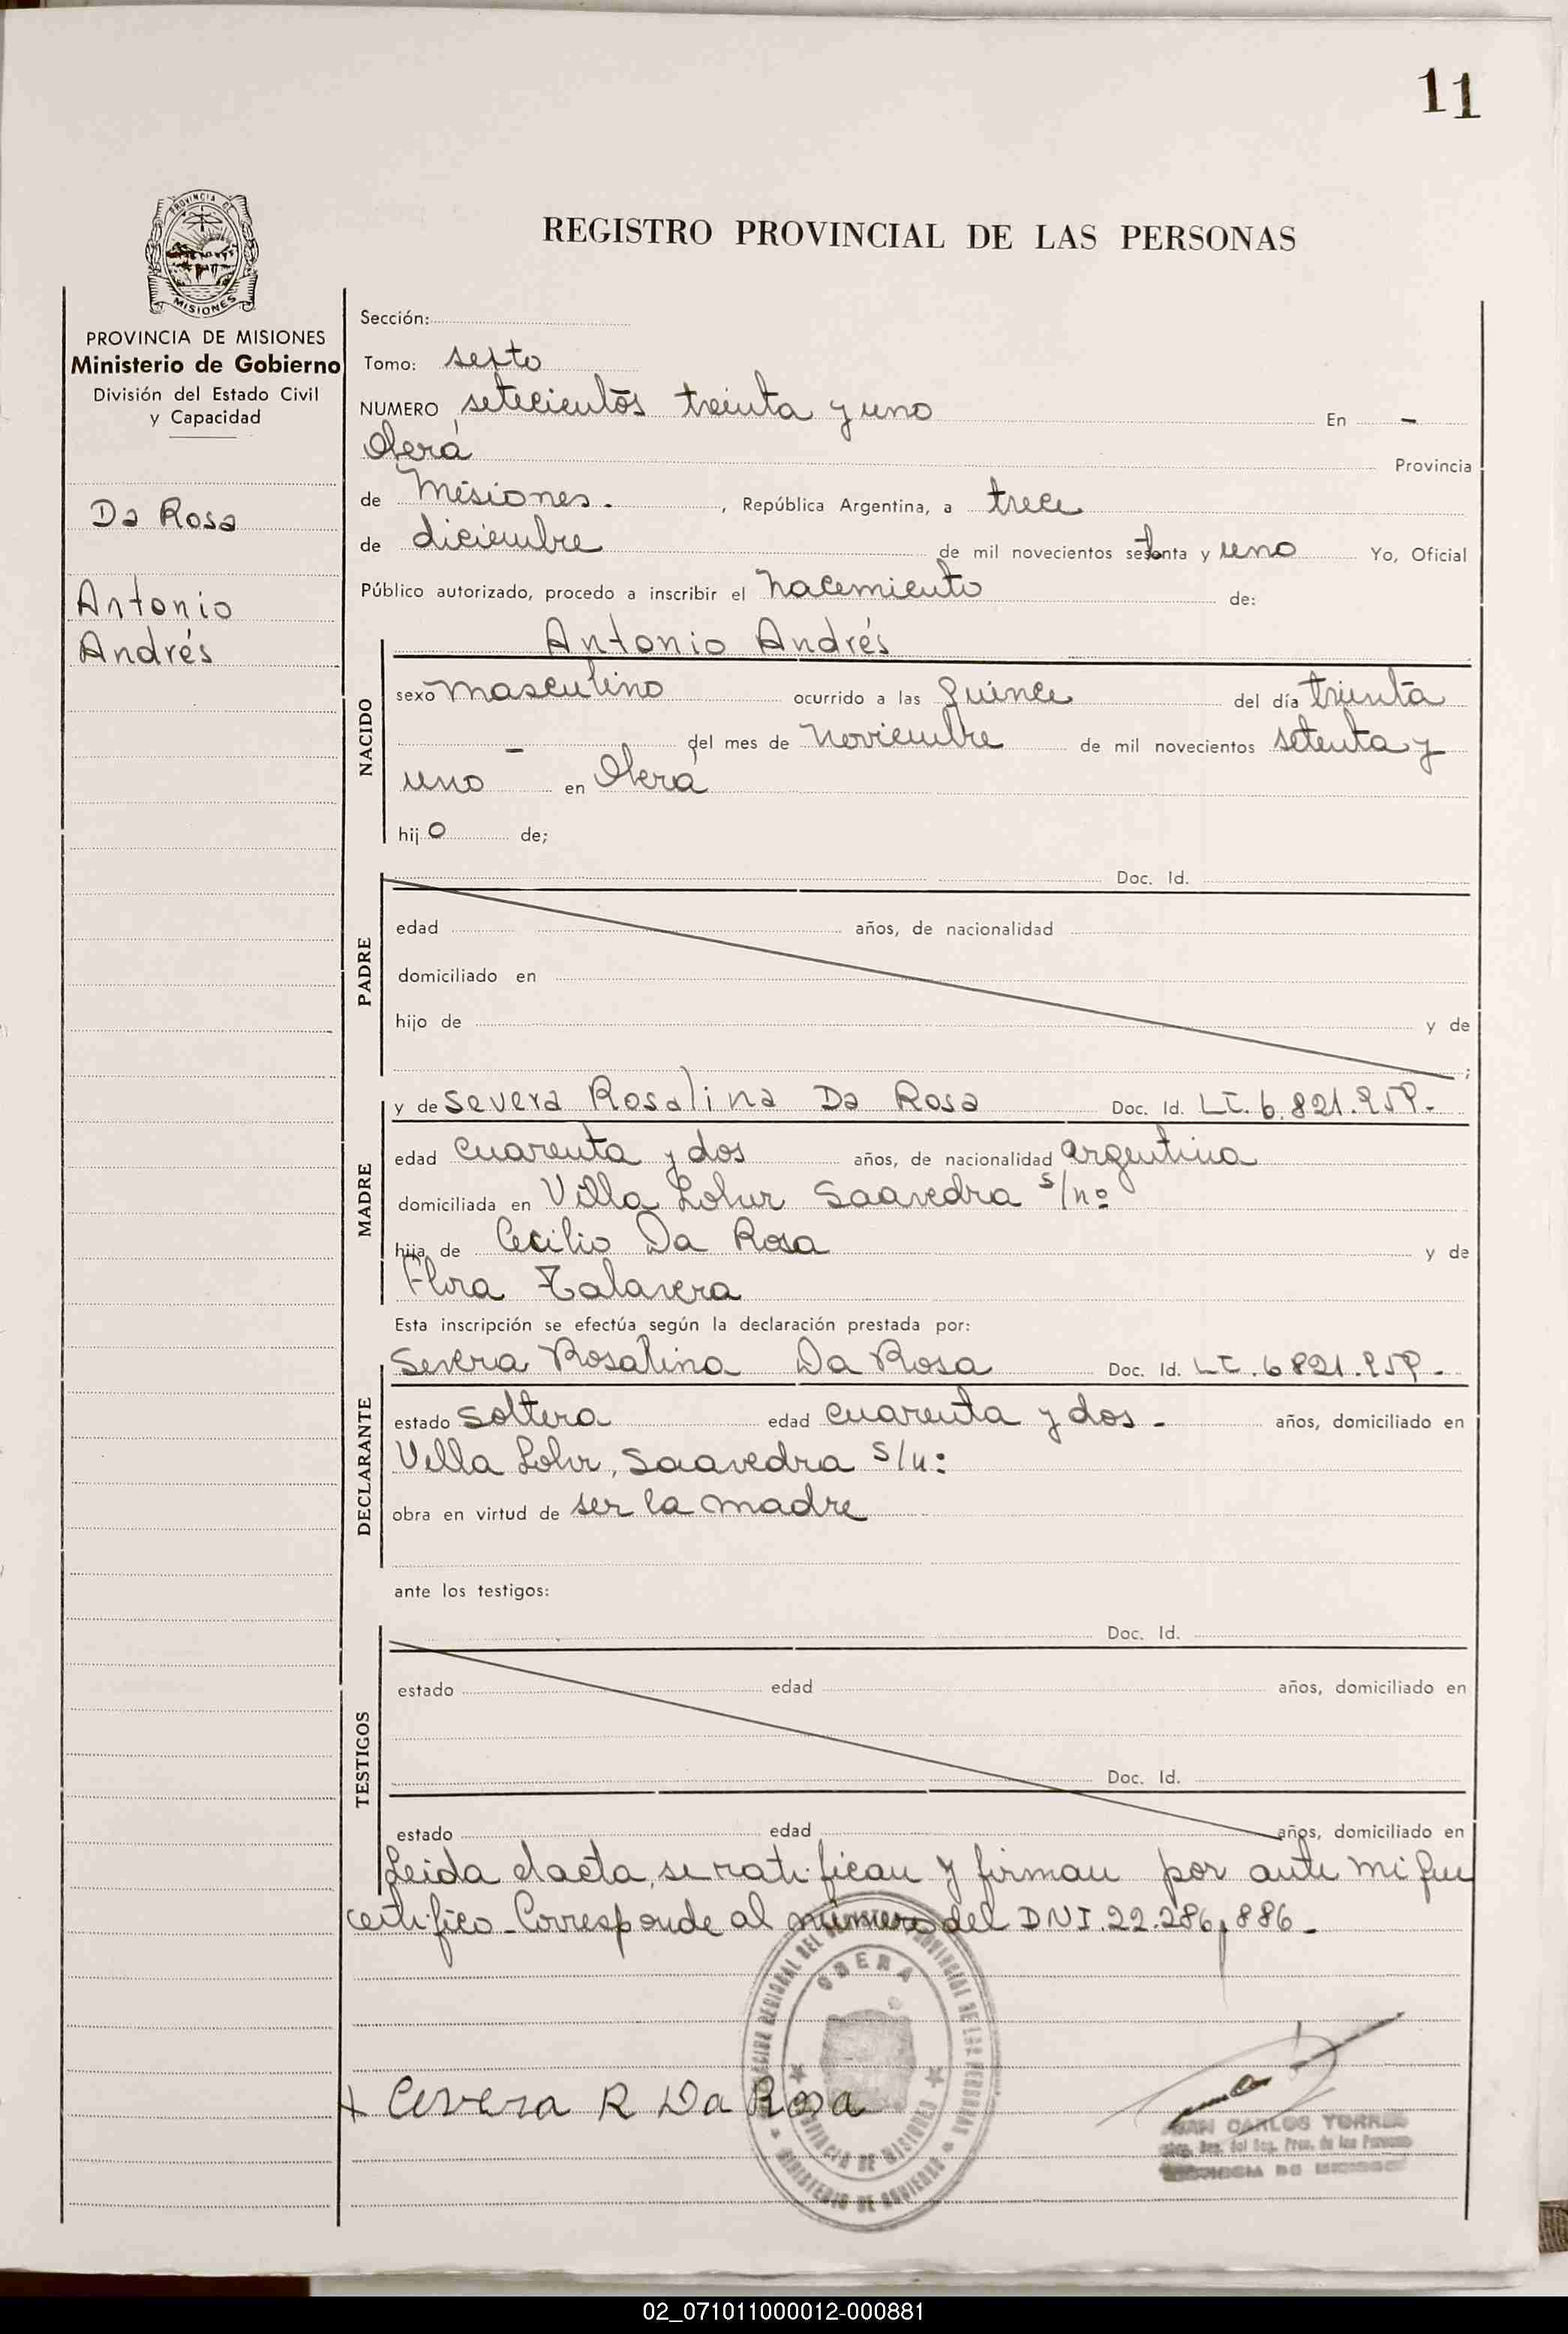 11
PROVINCIA DE
MISIONES
REGISTRO PROVINCIAL DE LAS PERSONAS
PROVINCIA DE MISIONES
Ministerio de Gobierno
División del Estado Civil
y Capacidad
Da Rosa
Antonio
Andrés
Sección:
Tomo: sexto
NUMERO setecientos treinta y uno En -
Oberá Provincia
de Misiones. , República Argentina, a trece
de diciembre de mil novecientos setenta y uno Yo, Oficial
Público autorizado, procedo a inscribir el nacemiento de:
NACIDO
Antonio Andrés
sexo masculino ocurrido a las quince del día treinta
- del mes de noviembre de mil novecientos setenta y
uno en Oberá
hijo de;
PADRE
Doc. Id.
edad años, de nacionalidad
domiciliado en
hijo de y de
;
MADRE
y de Severa Rosalina Da Rosa Doc. Id. LC. 6.821.959.-
edad cuarenta y dos años, de nacionalidad argentina
domiciliada en Villa Lohur Saavedra s/nº
hija de Cecilio Da Rosa y de
Flora Talavera
Esta inscripción se efectúa según la declaración prestada por:
DECLARANTE
Severa Rosalina Da Rosa Doc. Id. LC. 6821.959.-
estado soltera edad cuarenta y dos - años, domiciliado en
Villa Lohr, Saavedra s/n:
obra en virtud de ser la madre
ante los testigos:
TESTIGOS
Doc. Id.
estado edad años, domiciliado en
Doc. Id.
estado edad años, domiciliado en
Leida elacta, se ratifican y firman por ante mi que
certifico - Corresponde al número del DNI. 22.286,886-
OBERA
PROVINCIA DE MISIONES
MINISTERIO DE GOBIERNO
Cevera R Da Rosa
JUAN CARLOS TORRES
02_071011000012-000881